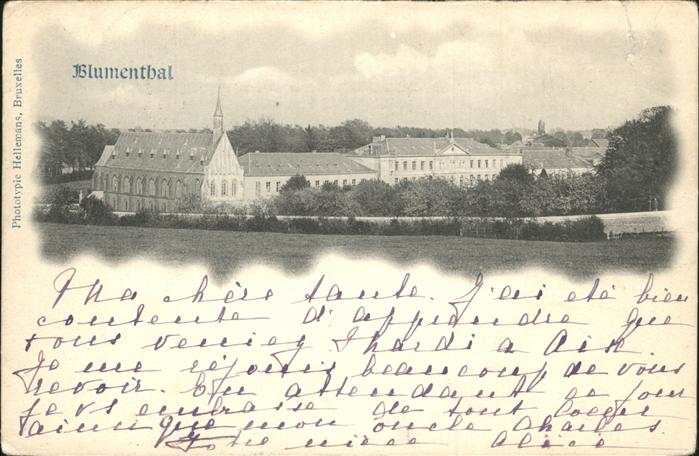 Blumenthal
Phototypie Hellemans, Bruxelles
Ma chère tante. J'ai été bien
contente d'apprendre que
vous veniez Mardi a Aix.
Je me réjouis beaucoup de vous
revoir. En attendant ce jour
je vs embrasse de tout coeur
ainsi que mon oncle Charles.
Votre niece Alice